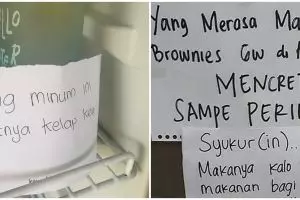 LLO
ng minum ini
nya kelap
Yang Merasa Ma
Brownies Gw di
MENCRE
SAMPE PERI
Syukur(in)..
Makanya kalo
makanan bagi